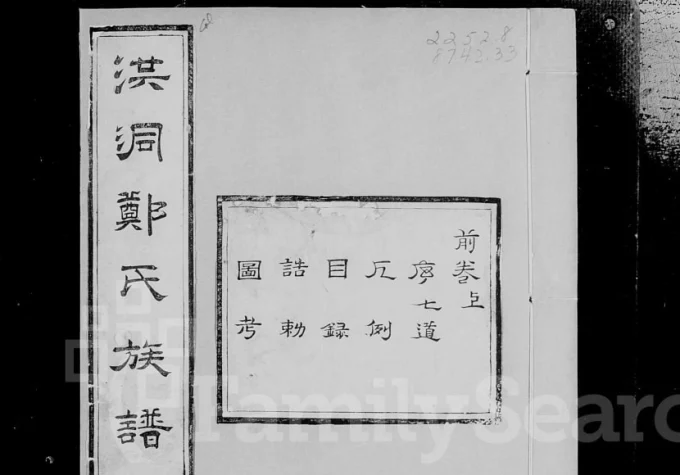 洪洞鄭氏族譜
22528
8742.33
前卷上
序七道
凡例
目録
誥勅
圖考
FamilySearc